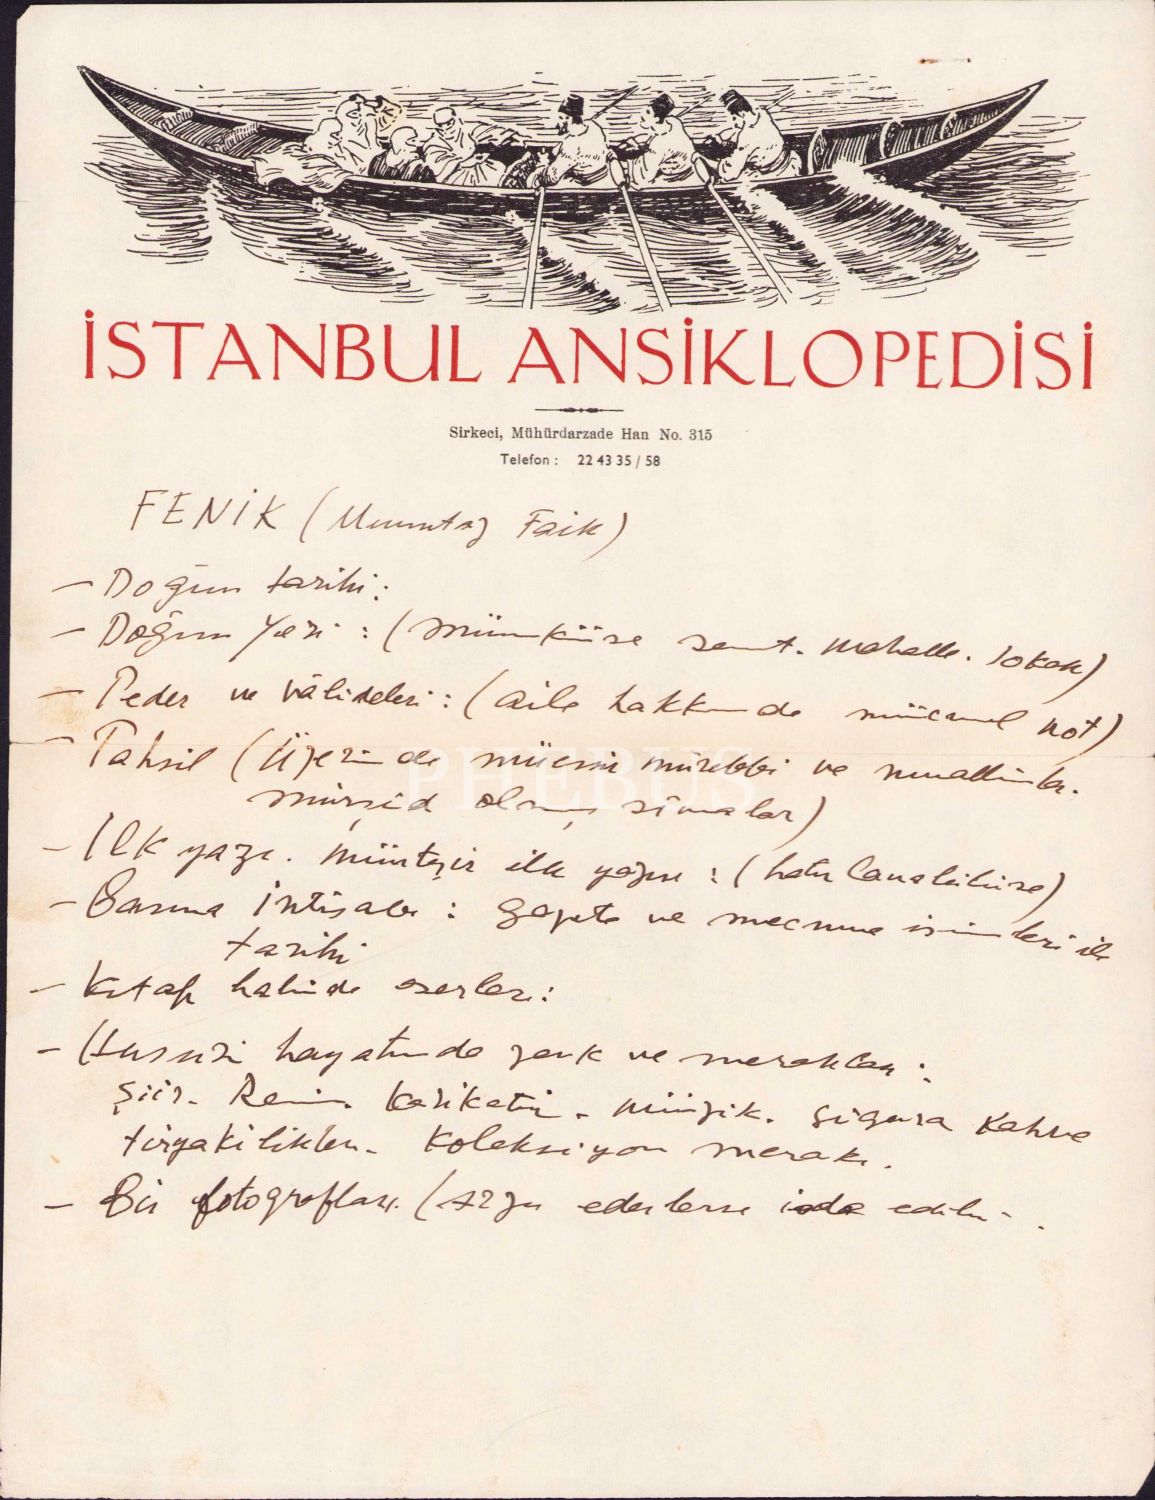 İSTANBUL ANSİKLOPEDİSİ
Sirkeci, Mühürdarzade Han No. 315
Telefon : 22 43 35 / 58
FENİK (Mümtaz Faik)
— Doğum tarihi:
— Doğum Yeri : (Mümkünse semt. Mahalle. Sokak)
— Peder ve vâlideleri : (aile hakkında mücmel not)
— Tahsil (Üzerinde müessir mürebbi ve muallimler.
mürşid olmuş simalar)
— İlk yazı. Münteşir ilk yazısı : (hatırlanabilirse)
— Basına İntisabı : Gazete ve mecmua isimleri ile
tarihi
— Kitap halinde eserleri :
— Hususi hayatında zevk ve merakları :
Şiir. Resim. Karikatür. Müzik. Sigara Kahve
tiryakilikleri. Koleksiyon merakı.
— Bir fotoğrafları. (Arzu ederlerse iade edilir.
PHEBUS